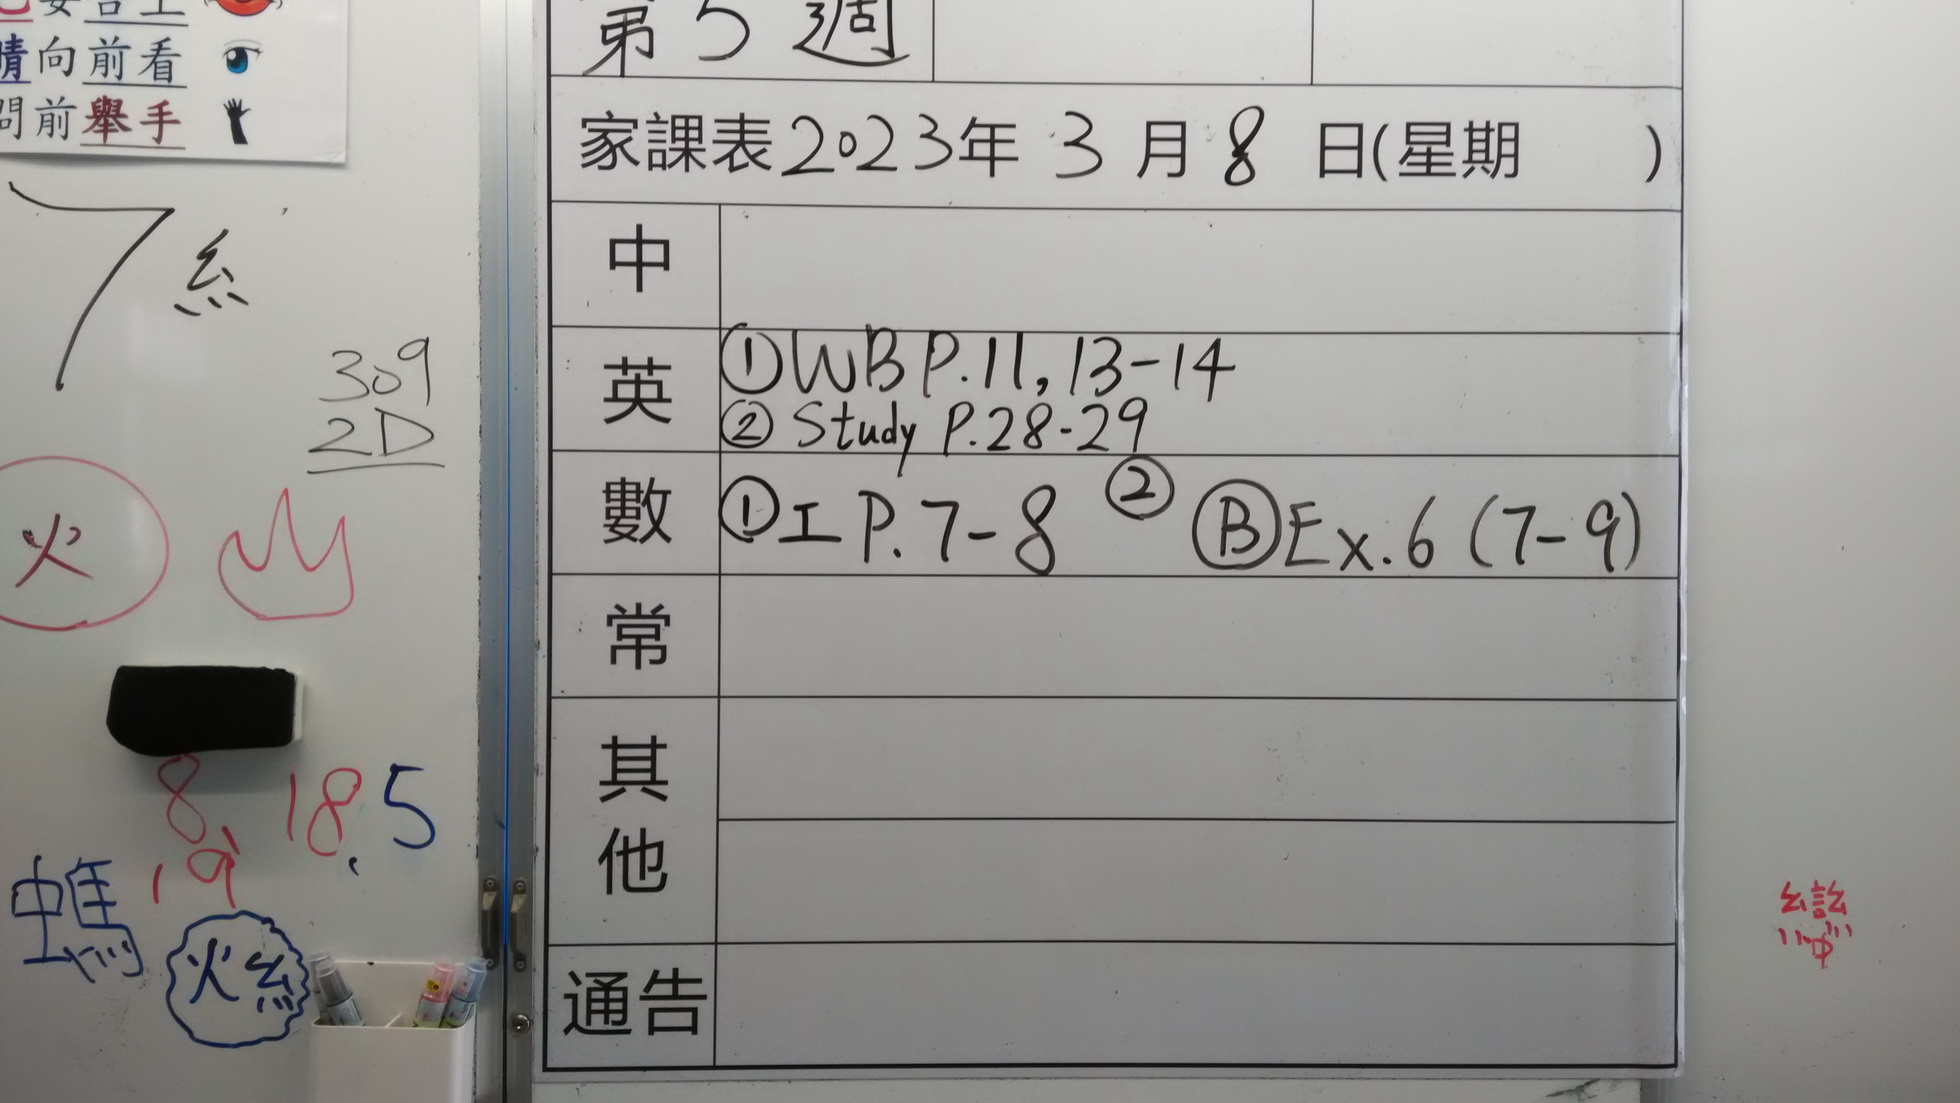 要合上
睛向前看
問前舉手
糹
309
2D
火
8, 18, 5
19
螞
火糹
第5週
家課表2023年 3 月 8 日(星期 )
中
英 ①WB P.11, 13-14
② Study P.28-29
數 ①工 P.7-8 ② Ⓑ Ex.6 (7-9)
常
其他
通告